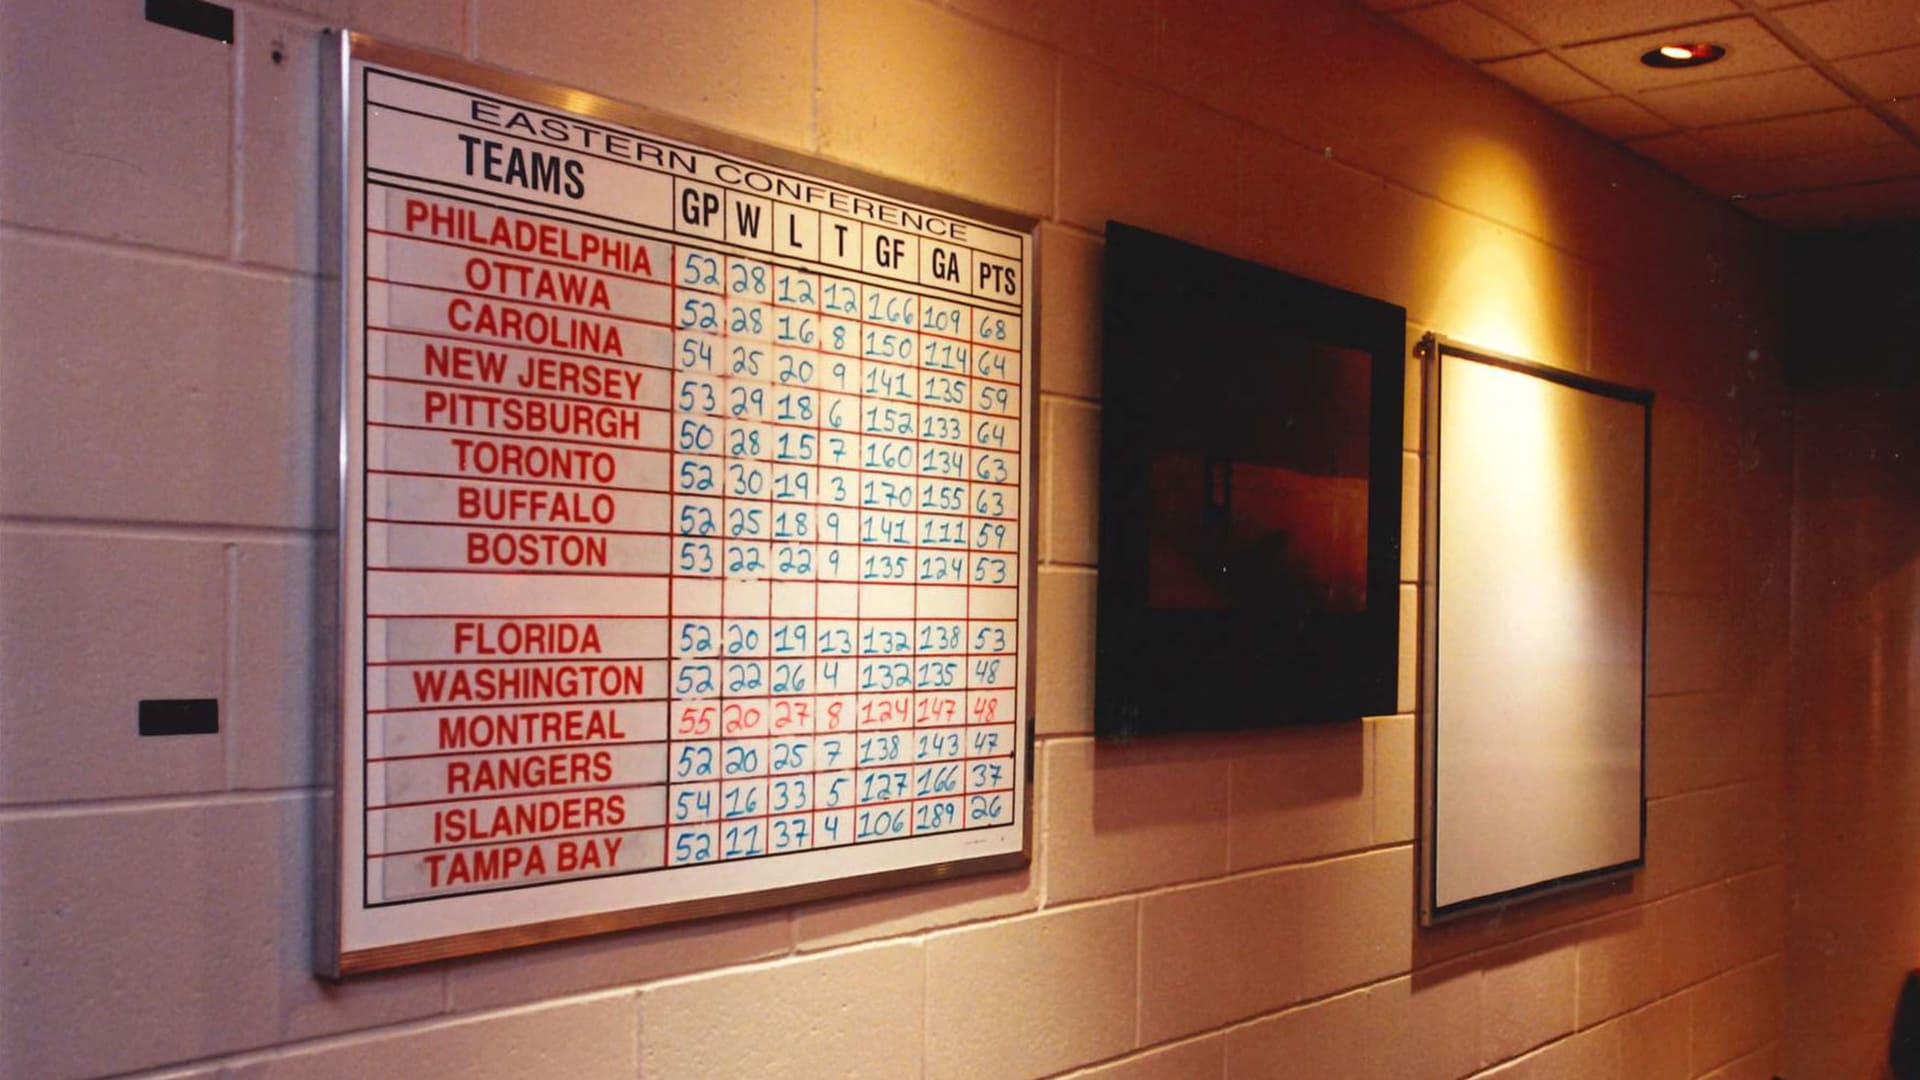 EASTERN CONFERENCE
TEAMS GP W L T GF GA PTS
PHILADELPHIA 52 28 12 12 166 109 68
OTTAWA 52 28 16 8 150 114 64
CAROLINA 54 25 20 9 141 135 59
NEW JERSEY 53 29 18 6 152 133 64
PITTSBURGH 50 28 15 7 160 134 63
TORONTO 52 30 19 3 170 155 63
BUFFALO 52 25 18 9 141 111 59
BOSTON 53 22 22 9 135 124 53
FLORIDA 52 20 19 13 132 138 53
WASHINGTON 52 22 26 4 132 135 48
MONTREAL 55 20 27 8 124 147 48
RANGERS 52 20 25 7 138 143 47
ISLANDERS 54 16 33 5 127 166 37
TAMPA BAY 52 11 37 4 106 189 26